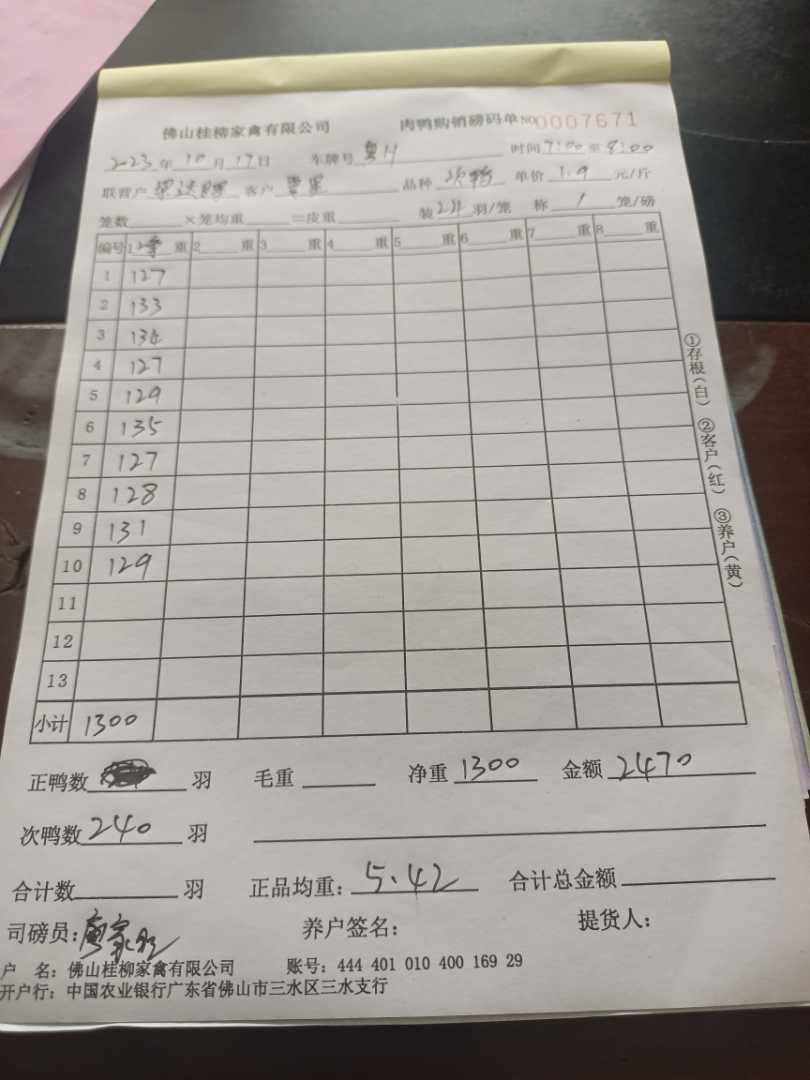 佛山桂柳家禽有限公司 肉鸭购销磅码单 NO 0007671
2023年10月17日 车牌号 粤 时间 7:00 至 8:00
联营户 客户 品种 次鸭 单价 1.9 元/斤
笼数 ×笼均重 =皮重 装 24 羽/笼 称 1 笼/磅
编号 1 重 2 重 3 重 4 重 5 重 6 重 7 重 8 重
1 127
2 133
3 134
4 127
5 129
6 135
7 127
8 128
9 131
10 129
11
12
13
小计 1300
正鸭数 羽 毛重 净重 1300 金额 2470
次鸭数 240 羽
合计数 羽 正品均重: 5.42 合计总金额
司磅员: 养户签名: 提货人:
户 名: 佛山桂柳家禽有限公司 账号: 444 401 010 400 169 29
开户行: 中国农业银行广东省佛山市三水区三水支行
①存根(白) ②客户(红) ③养户(黄)